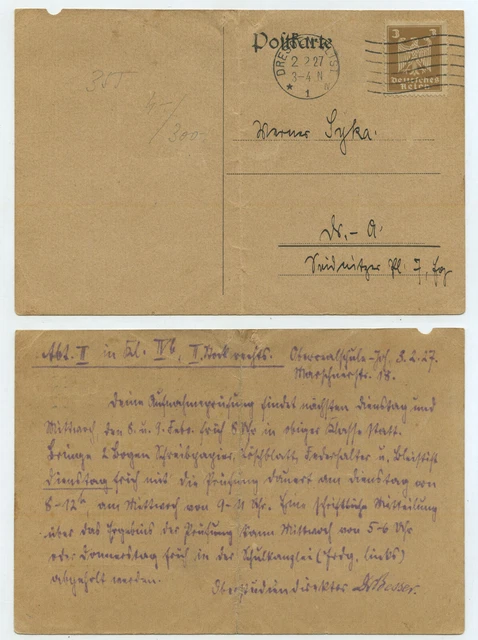 Postkarte
DRE
2.2.27
3-4 N
1
3 3
Deutsches
Reich
Werner Syka.
Dr.-A.
Seidnitzer Pl. 7, Eg
Abt. II in Kl. IVb, II. Stock rechts. Oberrealschule-Joh. 2.27.
Marschnerstr. 18.
Deine Aufnahmeprüfung findet nächsten Dienstag und
Mittwoch den 8. u. 9. Febr. früh 8 Uhr in obiger Klasse statt.
Bringe 2 Bogen Schreibpapier, Löschblatt, Federhalter u. Bleistift
Dienstag früh mit. Die Prüfung dauert am Dienstag von
8-12, am Mittwoch von 9-11 Uhr. Eine schriftliche Mitteilung
über das Ergebnis der Prüfung kann Mittwoch von 5-6 Uhr
oder Donnerstag früh in der Schulkanzlei (links)
abgeholt werden.
Oberstudiendirektor Dr. Besser.